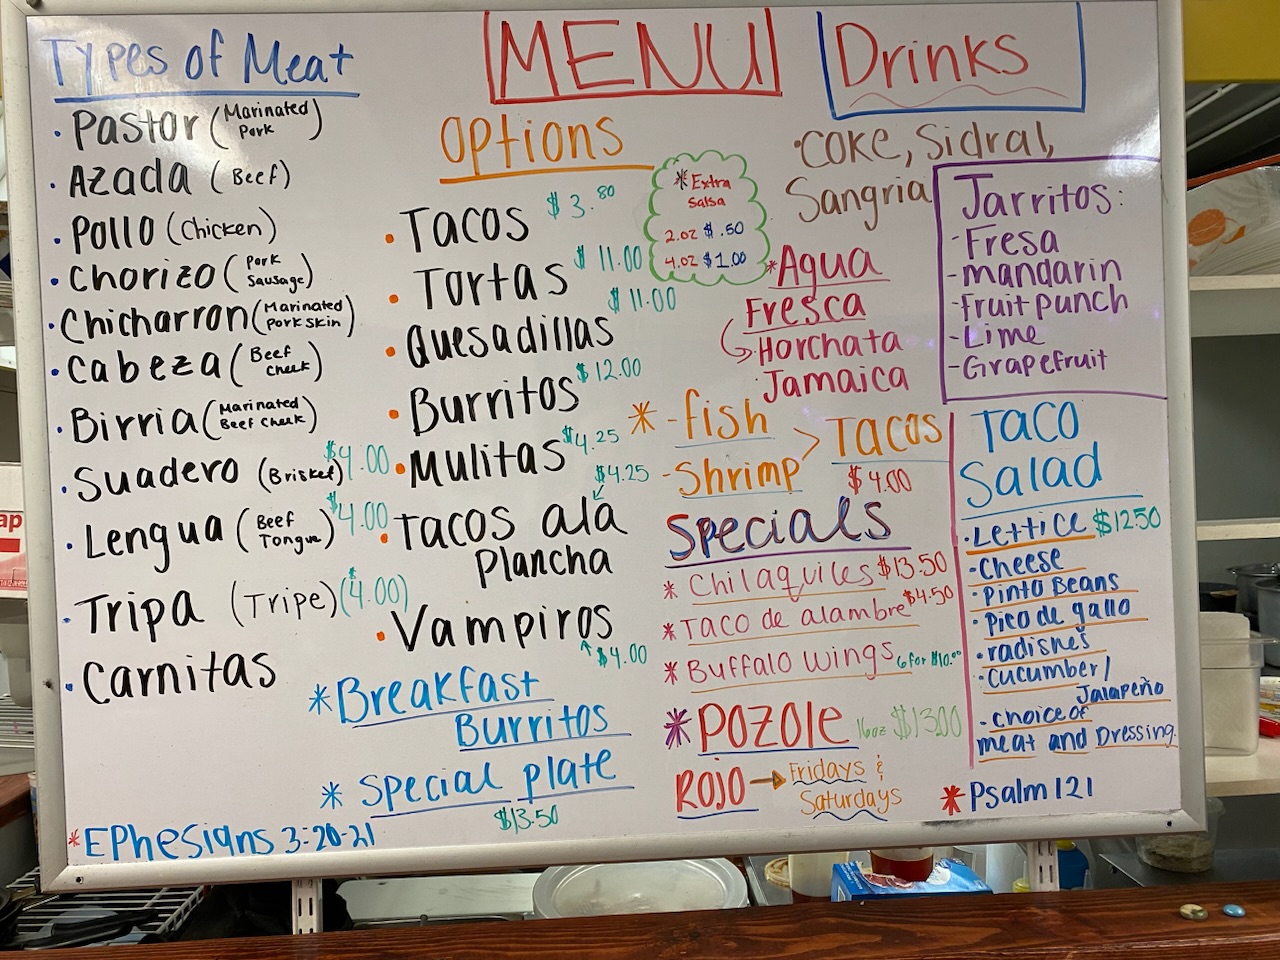 Types of Meat
• Pastor (Marinated Pork)
• Azada (Beef)
• Pollo (Chicken)
• Chorizo (Pork Sausage)
• Chicharron (Marinated Pork Skin)
• Cabeza (Beef Cheek)
• Birria (Marinated Beef Cheek)
• Suadero (Brisket) $4.00
• Lengua (Beef Tongue) $4.00
• Tripa (Tripe) ($4.00)
• Carnitas
*Ephesians 3:20-21
MENU
Options
• Tacos $3.80
• Tortas $11.00
• Quesadillas $11.00
• Burritos $12.00
• Mulitas $4.25
• Tacos ala Plancha $4.25
• Vampiros $4.00
*Breakfast
Burritos
* Special plate
$13.50
* Extra
Salsa
2.oz $.50
4.oz $1.00
Drinks
•Coke, Sidral,
Sangria
Jarritos:
-Fresa
-mandarin
-fruit punch
-Lime
-Grapefruit
*Agua
Fresca
Horchata
Jamaica
* -fish
-Shrimp > Tacos
$4.00
Specials
* Chilaquiles $13.50
* Taco de alambre $4.50
* Buffalo wings 6 for $10.00
* Pozole 16oz $13.00
Rojo → Fridays &
Saturdays
Taco
Salad
•Lettice $12.50
•Cheese
•Pinto Beans
•Pico de gallo
•radishes
•cucumber/
Jalapeño
-choice of
meat and Dressing.
*Psalm 121